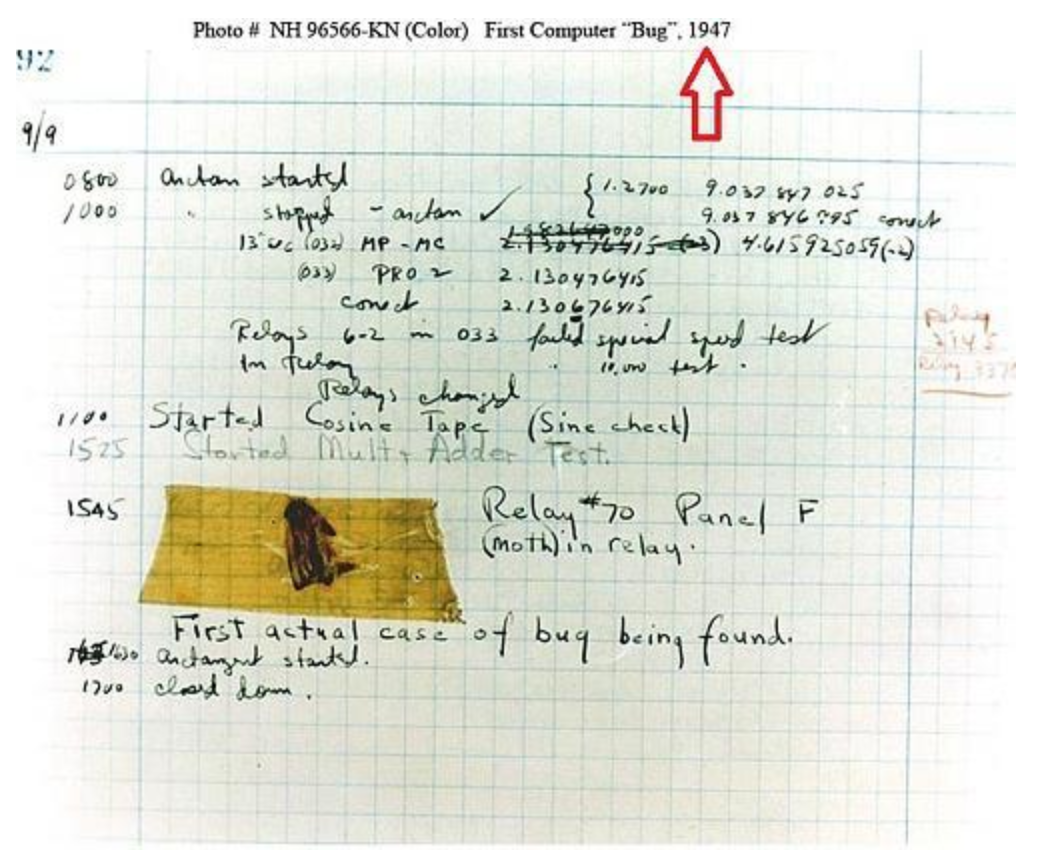 Photo # NH 96566-KN (Color) First Computer “Bug”, 1947
92
9/9
0800 Antan started { 1.2700 9.037 847 025
1000 " stopped - antan ✓ 9.037 846 795 conect
13"uc (032) MP - MC 2.130476415 (-3) 4.615925059(-2)
(033) PRO 2 2.130476415
conect 2.130676415
Relays 6-2 in 033 failed special speed test
In Relay " 10.000 test .
Relay
2145
Relay 3370
Relays changed
1100 Started Cosine Tape (Sine check)
1525 Started Mult+ Adder Test.
1545 Relay #70 Panel F
(moth) in relay.
First actual case of bug being found.
1630 Antangent started.
1700 closed down .